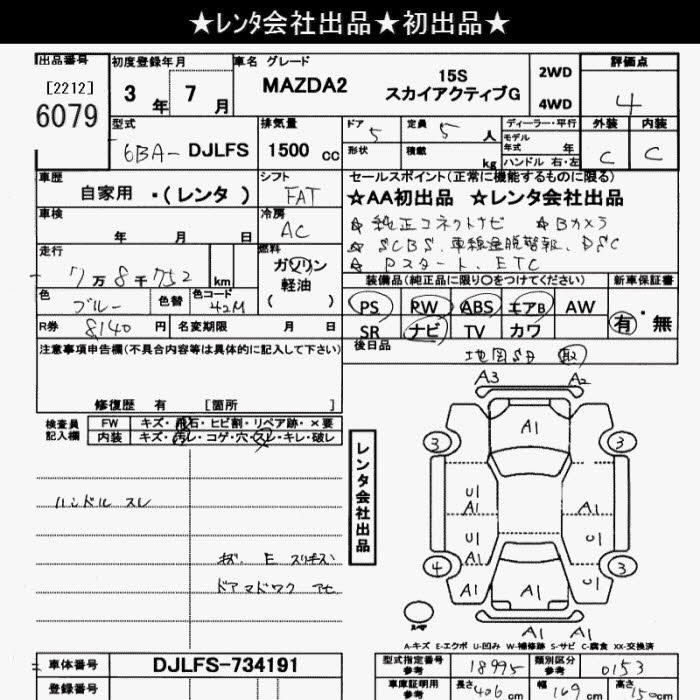 ★レンタ会社出品★初出品★
出品番号
[2212]
6079
初度登録年月
3年7月
車名 グレード
MAZDA2
15S
スカイアクティブG
2WD
4WD
評価点
4
外装 内装
C C
型式
6BA- DJLFS
排気量
1500 cc
ドア
5
定員
5
形状
積載
kg
ディーラー・平行
モデル
年式 年
ハンドル 右・左
車歴
自家用 ・(レンタ)
シフト
FAT
車検
年 月 日
冷房
AC
走行
7万8千752 km
燃料
ガソリン
軽油
( )
色
ブルー
色替
色コード
42M
R券 8140 円
名変期限 月 日
セールスポイント(正常に機能するものに限る)
★AA初出品 ★レンタ会社出品
☆純正コネクトナビ ☆Bカメラ
☆SCBS、車線逸脱警報、DSC
☆Pスタート、ETC
装備品(純正品に限り○をつけてください)
PS RW ABS エアB AW
SR ナビ TV カワ
新車保証書
有・無
後日品
地図SD 取
注意事項申告欄(不具合内容等は具体的に記入して下さい)
修復歴 有 [箇所 ]
検査員
記入欄
FW キズ・飛石・ヒビ割・リペア跡・×要
内装 キズ・汚レ・コゲ・穴・スレ・キレ・破レ
ハンドル スレ
キズ、E スリキズ
ドアマドワク アセ
レンタ会社出品
A3 A2
A1
3 3
U1
A1 A1
U1
A1 U1
4 3
A1 A1 A1
A1 A1
スペア
A-キズ E-エクボ U-凹み W-補修跡 S-サビ C-腐食 XX-交換済
車体番号
DJLFS-734191
登録番号
型式指定番号
参考
18995
類別区分
参考
0153
車庫証明用
参考
長さ 406 cm
幅 169 cm
高さ 150 cm